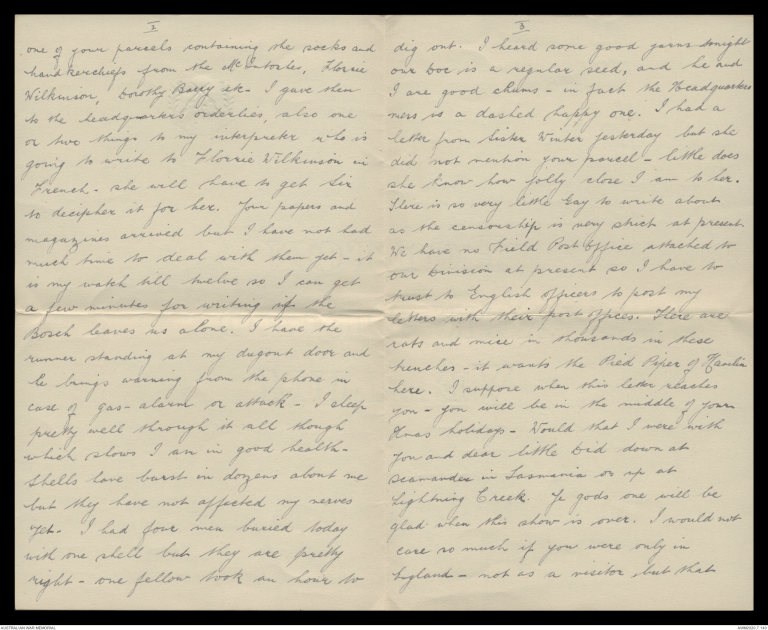 2
one of your parcels containing the socks and
handkerchiefs from the McIntoshes, Florrie
Wilkinson, Dorothy Barry etc - I gave them
to the headquarters orderlies, also one
or two things to my interpreter who is
going to write to Florrie Wilkinson in
French - she will have to get Sir
to decipher it for her. Your papers and
magazines arrived but I have not had
much time to deal with them yet - it
is my watch till twelve so I can get
a few minutes for writing if the
Bosch leaves us alone. I have the
runner standing at my dugout door and
he brings warning from the phone in
case of gas-alarm or attack - I sleep
pretty well through it all though
which shows I am in good health -
Shells have burst in dozens about me
but they have not affected my nerves
yet - I had four men buried today
with one shell but they are pretty
right - one fellow took an hour to
3
dig out. I heard some good yarns tonight
our Doc is a regular seed, and he and
I are good chums - in fact the Headquarters
mess is a dashed happy one. I had a
letter from Sister Winter yesterday but she
did not mention your parcel - little does
she know how jolly close I am to her.
There is so very little Gay to write about
as the censorship is very strict at present
We have no Field Post Office attached to
our Division at present so I have to
trust to English officers to post my
letters with their post offices. There are
rats and mice in thousands in these
trenches - it wants the Pied Piper of Hamlin
here. I suppose when this letter reaches
you - you will be in the middle of your
Xmas holidays - Would that I were with
you and dear little Did down at
Scamander in Tasmania or up at
Lightning Creek. Ye gods one will be
glad when this show is over. I would not
care so much if you were only in
England - not as a visitor, but that
AUSTRALIAN WAR MEMORIAL